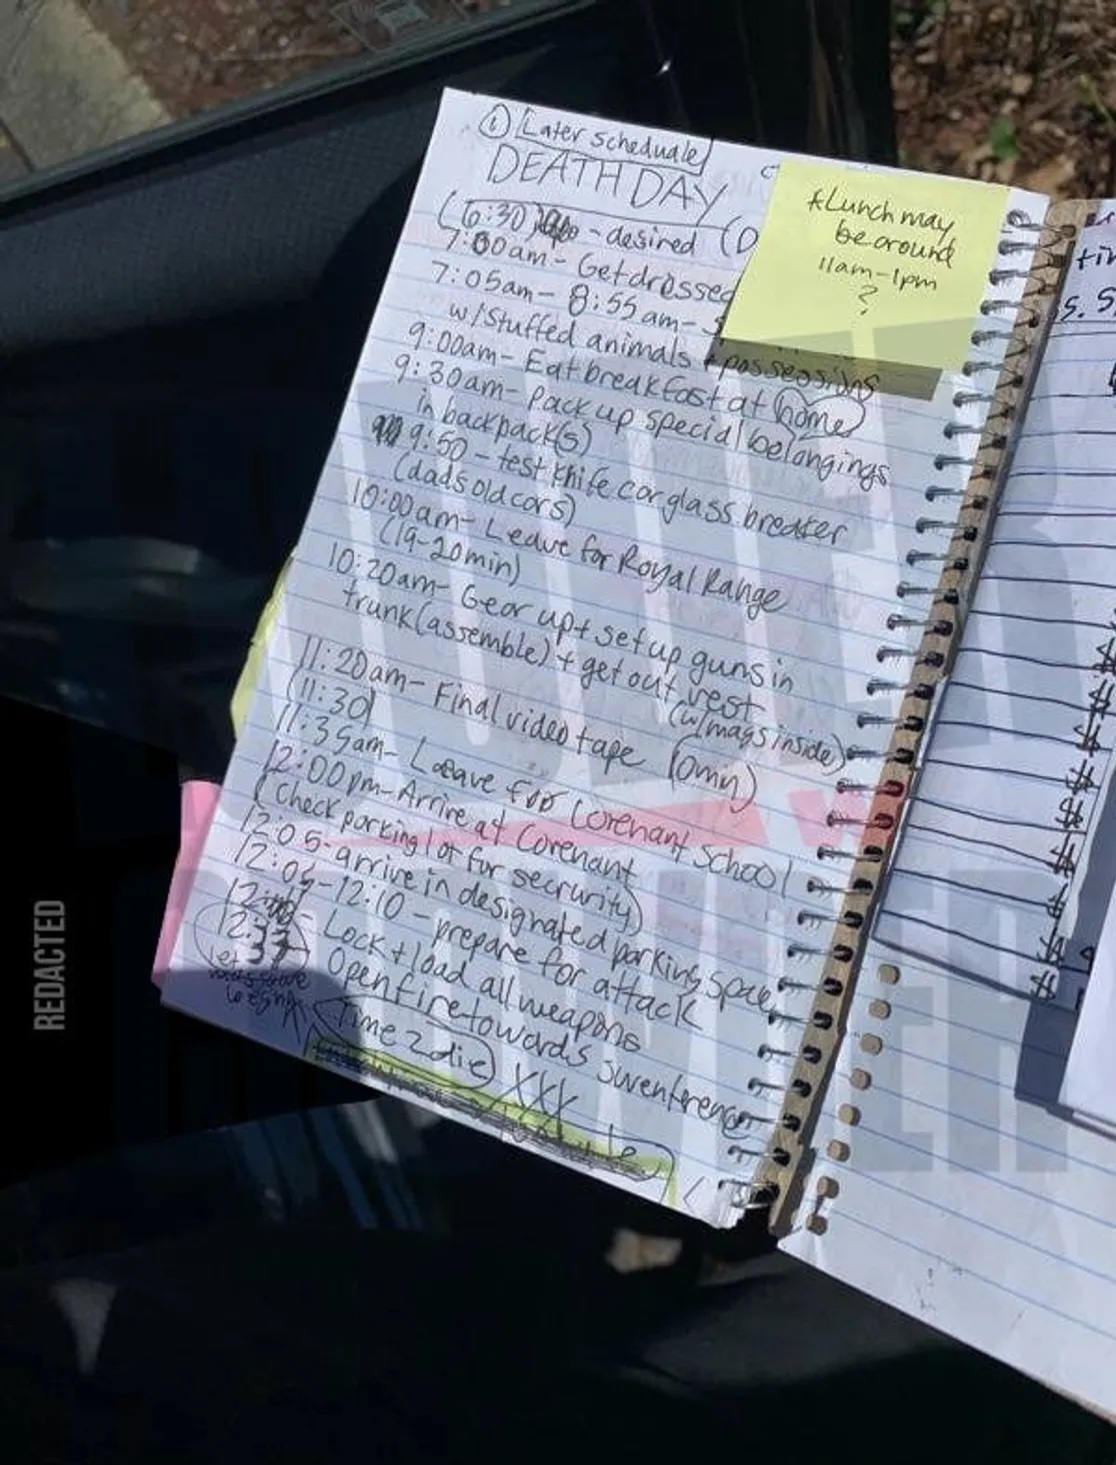 ① Later scheduale
DEATH DAY
(6:30) - desired (D
7:00am - Get dressed
7:05am - 8:55am - S
w/ Stuffed animals + possessions
9:00am - Eat breakfast at home
9:30am - Pack up special belongings
in backpack(s)
9:50 - test knife car glass breaker
(dads old cars)
10:00am - Leave for Royal Range
(19-20min)
10:20am - Gear up + set up guns in
trunk (assemble) + get out vest
(w/ mags inside)
11:20am - Final video tape (0my)
(11:30)
11:35am - Leave for Covenant School
12:00pm - Arrive at Covenant
(Check parking lot for secrurity)
12:05 - arrive in designated parking space
12:06 - 12:10 - prepare for attack
Lock + load all weapons
12:33 Open fire towards
Time 2 die XXX
*Lunch may
be around
11am-1pm
?
REDACTED